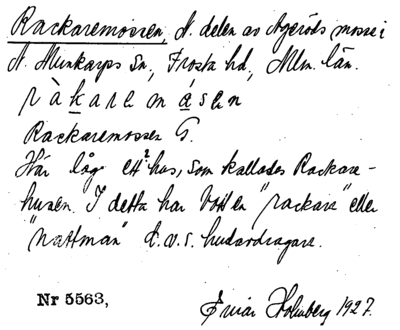 Rackaremossen, N. delen av Ageröds mosse i
N. Munkarps sn, Frosta hd, Mlm. län.
ràkaremásen
Rackaremossen G.
Här låg ett hus, som kallades Rackare-
husen. I detta har bott en "rackare" eller
"nattman" d.v.s. hudavdragare.
Nr 5563,
Einar Holmberg 1927.